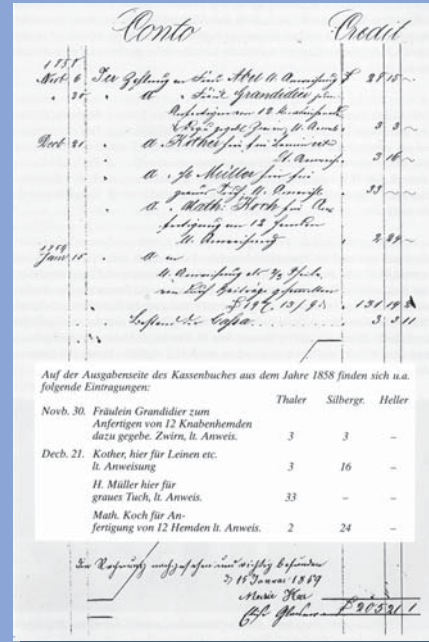 Conto Credit
1858
Novb 6 Per Zahlung an Abel lt. Anweisung 28 15 ~
" 30 " Grandidier
Anfertigen von 12 Knabenhemden
3 3 ~
Decb 21 a Kother für Leinen etc
lt. Anweis. 3 16 ~
a Müller für
graues Tuch, lt. Anweis. 33 ~ ~
a Math. Koch für An-
fertigung von 12 Hemden
lt. Anweisung 2 24 ~
1859
Janr 15 a
lt. Anweisung als
131 19
Bestand der Cassa 3 3 11
Auf der Ausgabenseite des Kassenbuches aus dem Jahre 1858 finden sich u.a.
folgende Eintragungen:
Thaler Silbergr. Heller
Novb. 30. Fräulein Grandidier zum
Anfertigen von 12 Knabenhemden
dazu gegebe. Zwirn, lt. Anweis. 3 3 –
Decb. 21. Kother, hier für Leinen etc.
lt. Anweisung 3 16 –
H. Müller hier für
graues Tuch, lt. Anweis. 33 – –
Math. Koch für An-
fertigung von 12 Hemden lt. Anweis. 2 24 –
Die Rechnung nachgesehen und richtig befunden
15 Januar 1859
Marie
205 21 1